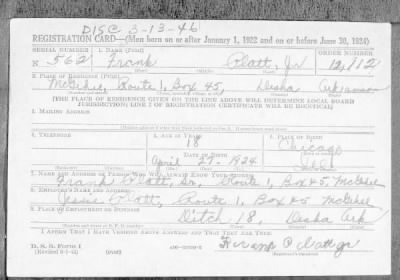 DISC 3-13-46
REGISTRATION CARD—(Men born on or after January 1, 1922 and on or before June 30, 1924)
SERIAL NUMBER 1. NAME (Print) ORDER NUMBER
N 562 Frank Platt, Jr 12,112
(First) (Middle) (Last)
2. PLACE OF RESIDENCE (Print)
McGehee, Route 1, Box 45, Desha Arkansas
[THE PLACE OF RESIDENCE GIVEN ON THE LINE ABOVE WILL DETERMINE LOCAL BOARD
JURISDICTION; LINE 2 OF REGISTRATION CERTIFICATE WILL BE IDENTICAL]
3. MAILING ADDRESS
4. TELEPHONE 5. AGE IN YEARS 6. PLACE OF BIRTH
18 Chicago
DATE OF BIRTH
April 27-1924 Ill.
7. NAME AND ADDRESS OF PERSON WHO WILL ALWAYS KNOW YOUR ADDRESS
Frank Platt, Sr, Route 1, Box 45, McGehee
8. EMPLOYER'S NAME AND ADDRESS
Jessie Platt, Route 1, Box 45 McGehee
9. PLACE OF EMPLOYMENT OR BUSINESS
Ditch 18, Desha Ark
I AFFIRM THAT I HAVE VERIFIED ABOVE ANSWERS AND THAT THEY ARE TRUE.
D. S. S. Form 1
Frank Platt Jr